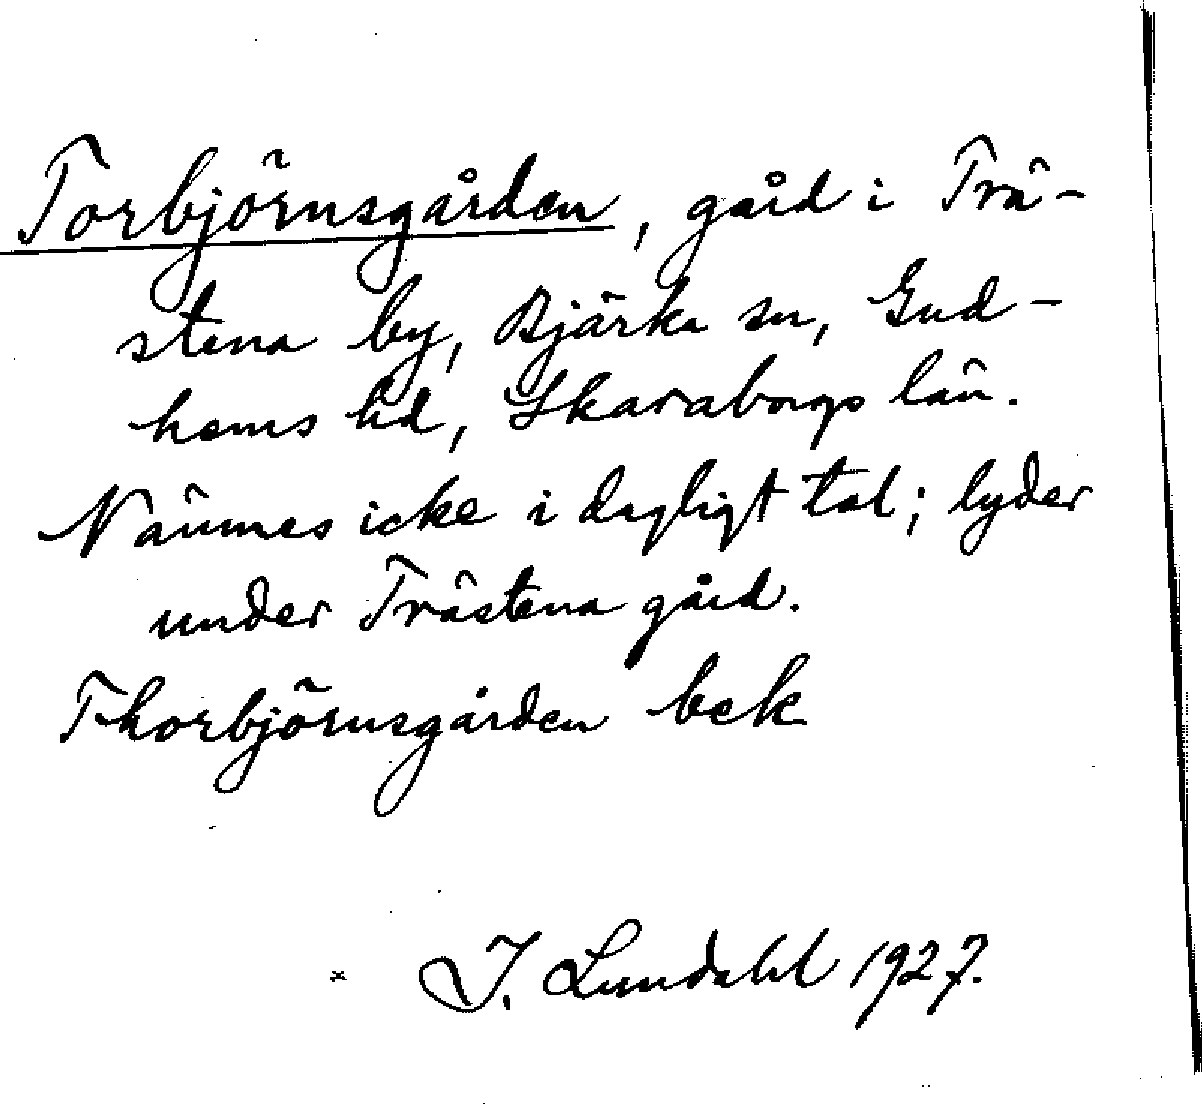 Torbjörnsgården, gård i Trä-
stena by, Bjärka sn, Gud-
hems hd, Skaraborgs län.
Nämnes icke i dagligt tal; lyder
under Trästena gård.
Thorbjörnsgården bek
× I. Lundahl 1927.